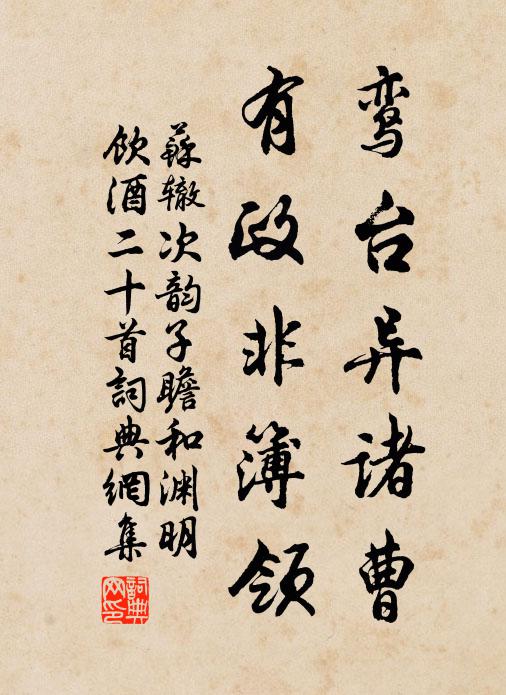 鸾台异诸曹
有政非簿领
蘇辙次韵子瞻和渊明
飲酒二十首詞典網集
詞典
网印